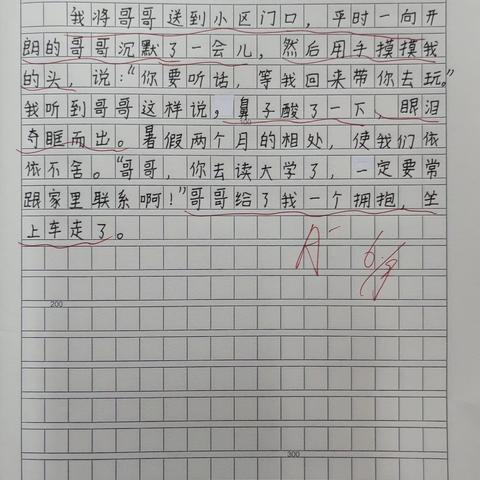 我将哥哥送到小区门口，平时一向开
朗的哥哥沉默了一会儿，然后用手摸摸我
的头，说：“你要听话，等我回来带你去玩。”
我听到哥哥这样说，鼻子酸了一下，眼泪
夺眶而出。暑假两个月的相处，使我们依
依不舍。“哥哥，你去读大学了，一定要常
跟家里联系啊！”哥哥给了我一个拥抱，坐
上车走了。
A-
200
300